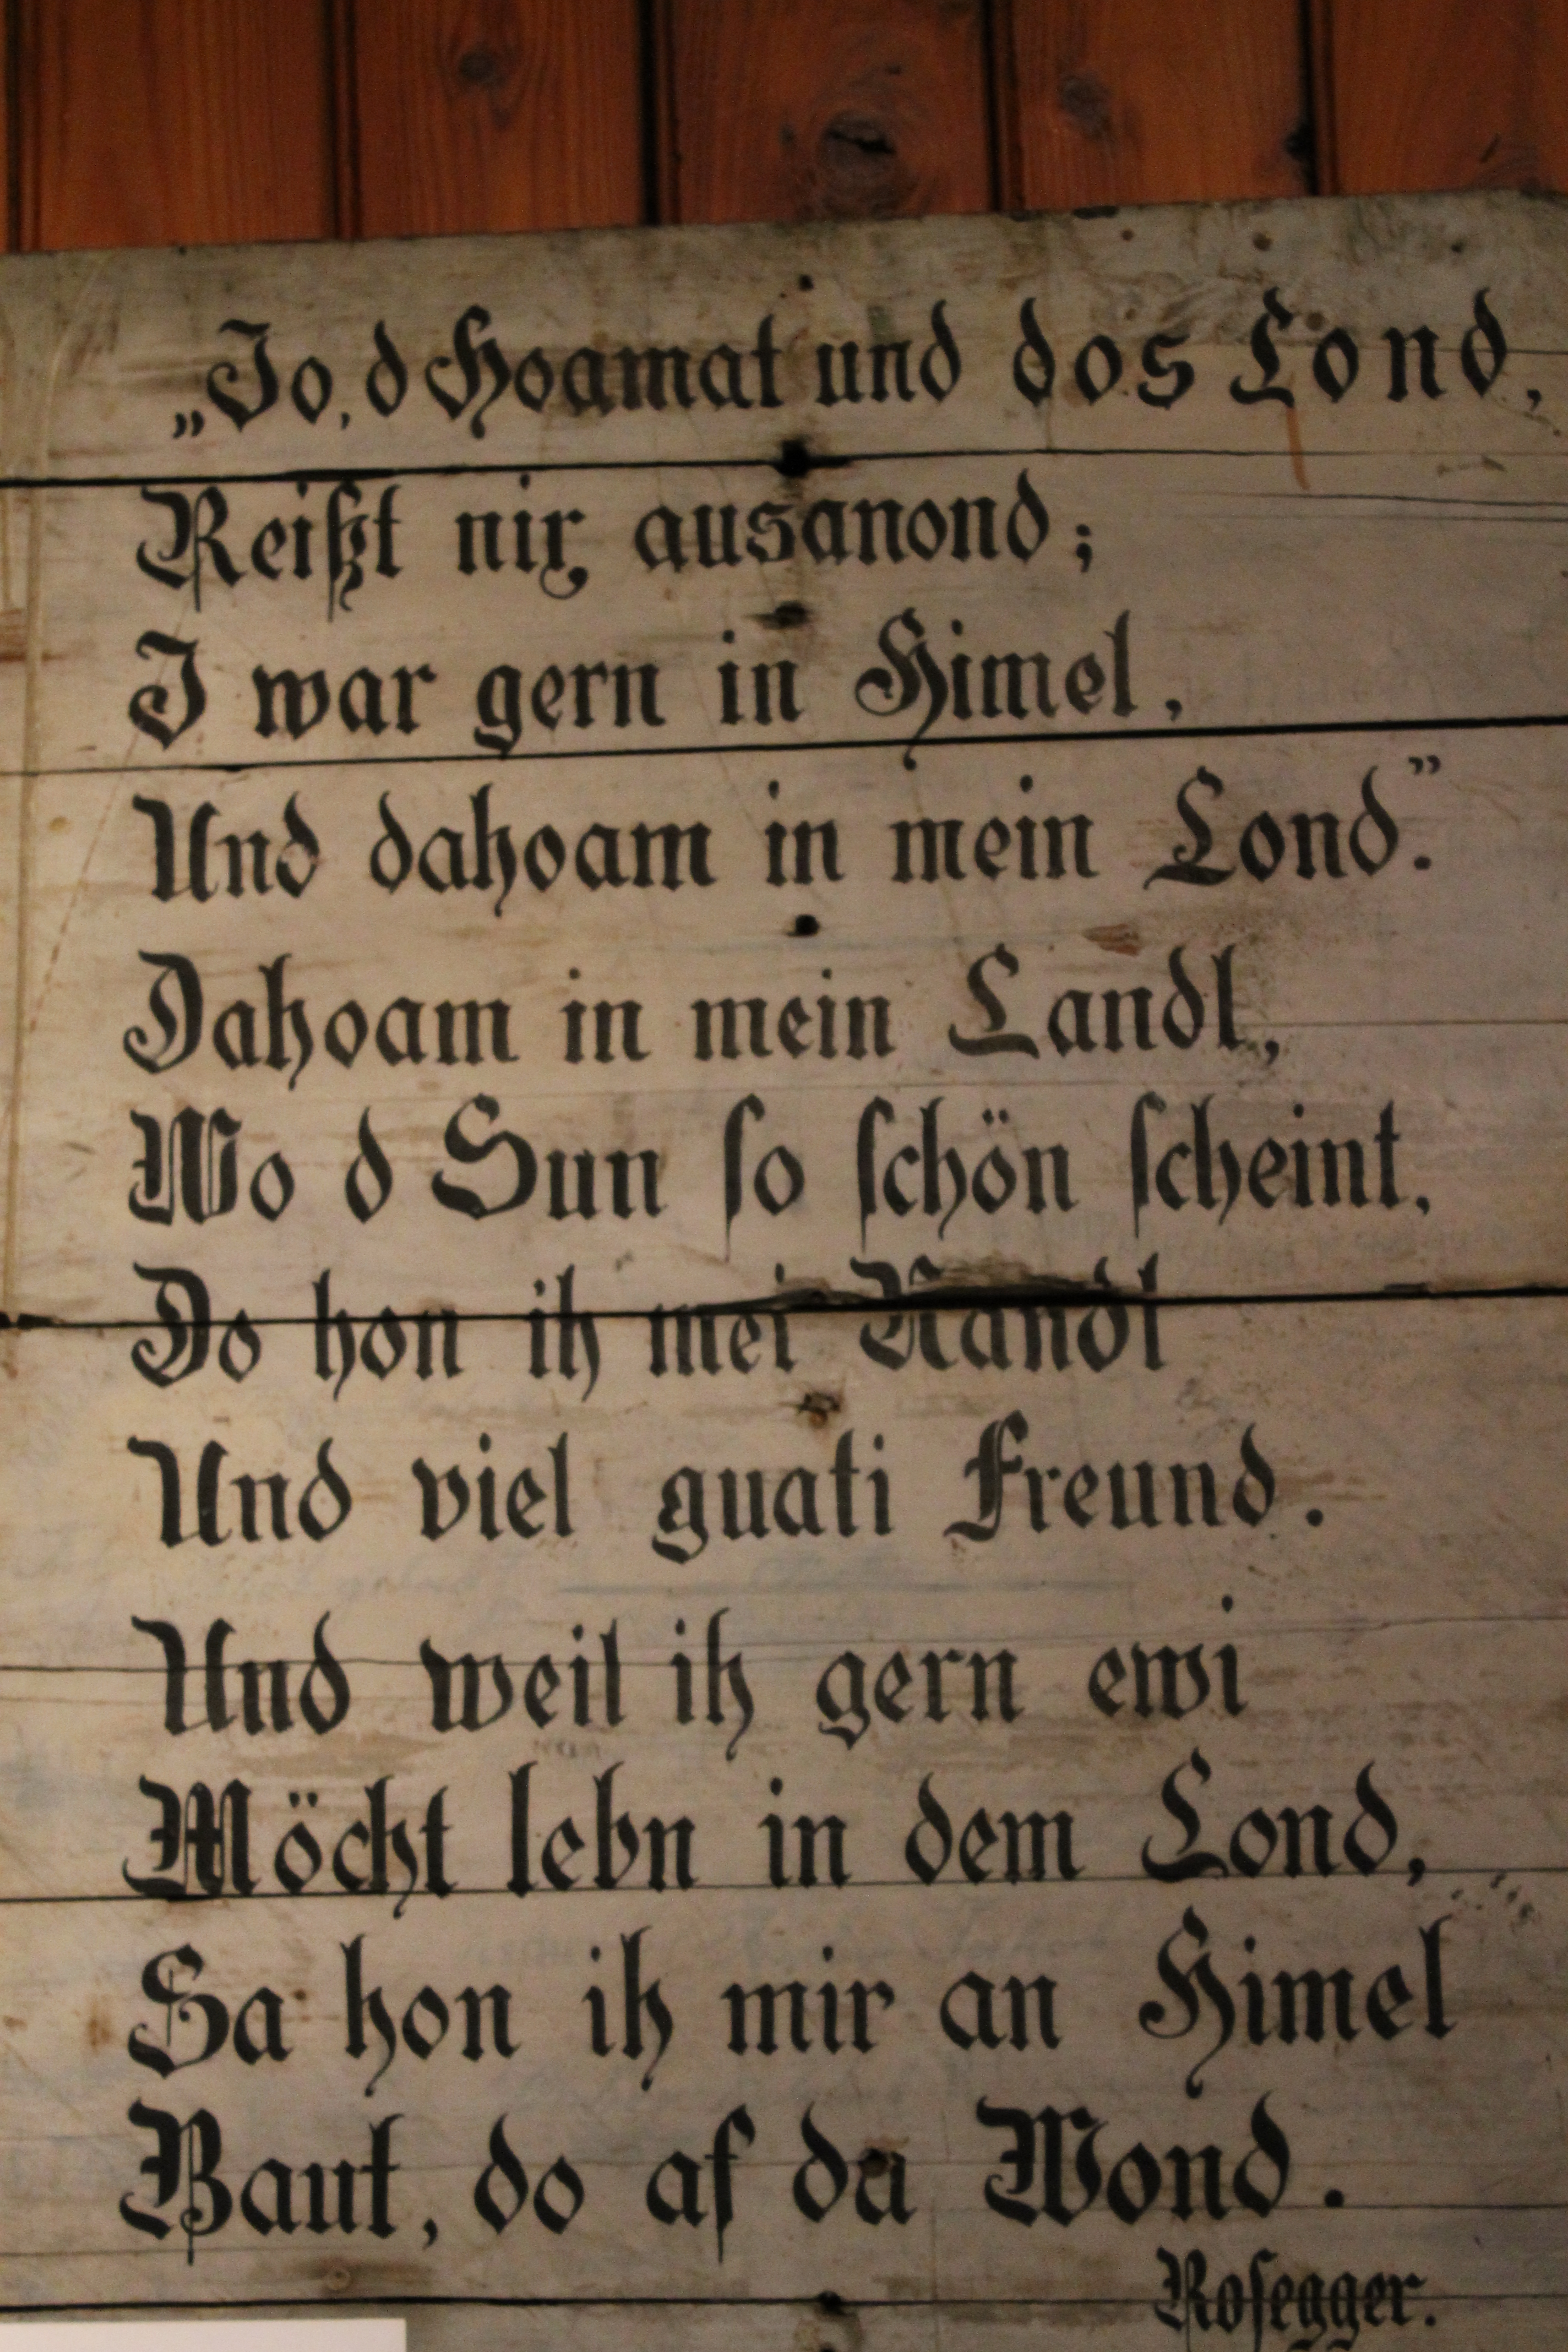 „Jo, d Hoamat und dos Lond,
Reißt nix ausanond;
I war gern in Himel,
Und dahoam in mein Lond.”
Dahoam in mein Landl,
Wo d Sun so schön scheint,
Do hon ih mei Nandl
Und viel guati Freund.
Und weil ih gern ewi
Möcht lebn in dem Lond,
Sa hon ih mir an Himel
Baut, do af da Wond.
Rosegger.